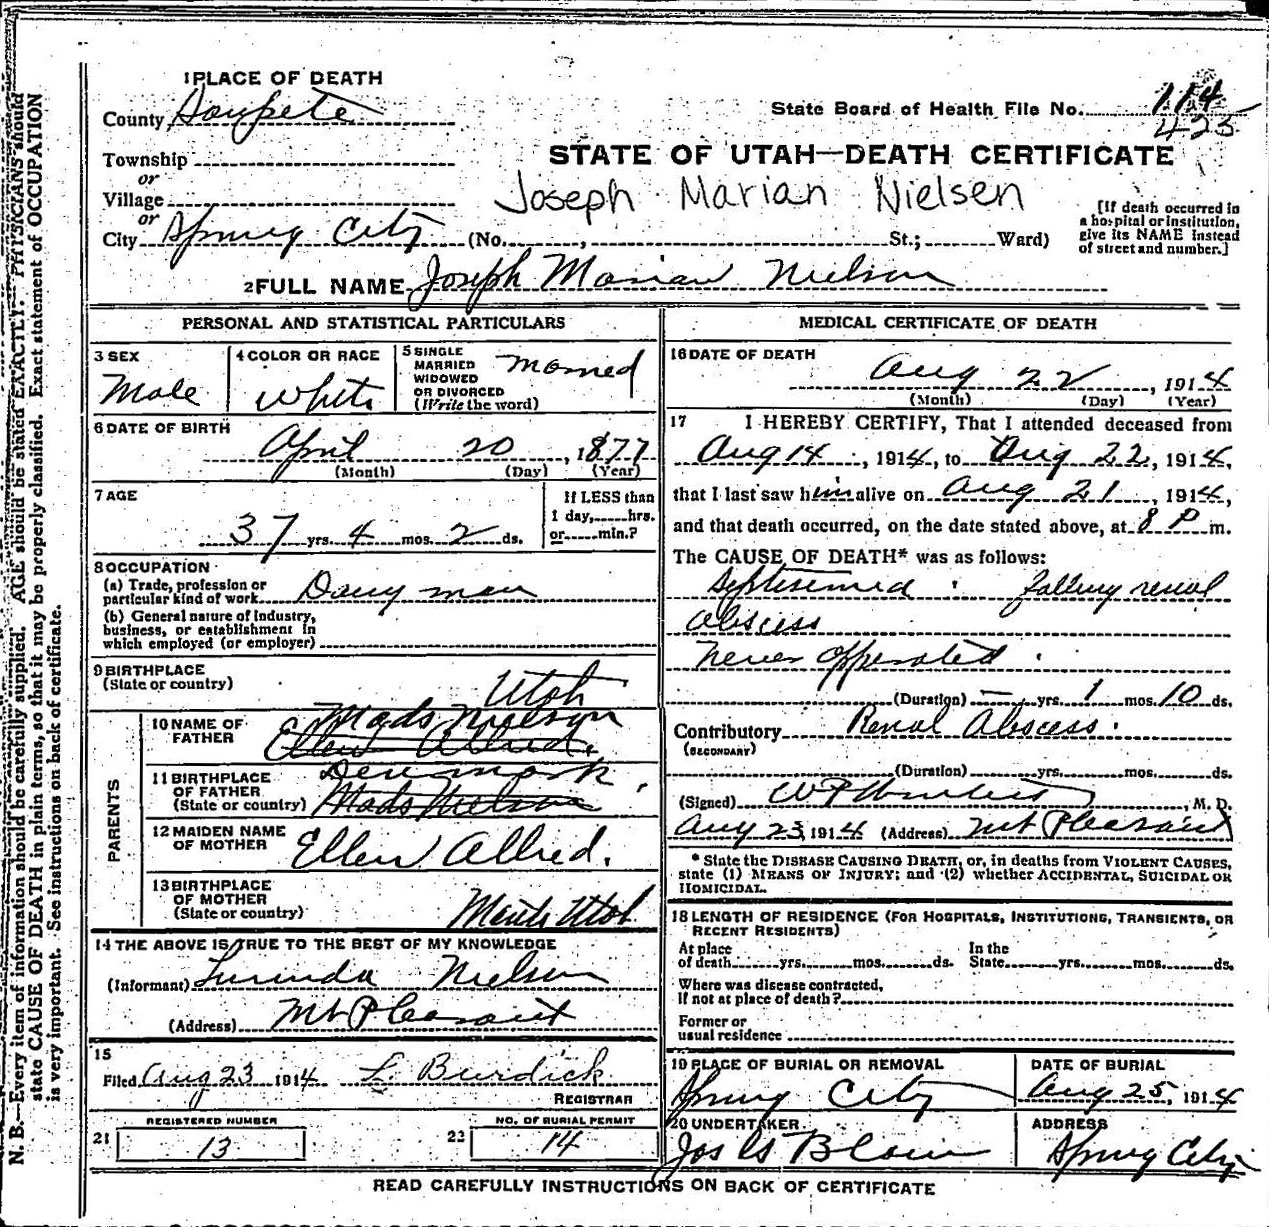 1 PLACE OF DEATH
County Sanpete
State Board of Health File No. 114
425
Township
or
Village
or
City Spring City (No. , St.; Ward)
STATE OF UTAH—DEATH CERTIFICATE
Joseph Marian Nielsen
[If death occurred in
a hospital or institution,
give its NAME instead
of street and number.]
2 FULL NAME Joseph Marian Nielson
PERSONAL AND STATISTICAL PARTICULARS
3 SEX
Male
4 COLOR OR RACE
White
5 SINGLE
MARRIED
WIDOWED
OR DIVORCED
(Write the word)
Married
6 DATE OF BIRTH
April 20, 1877
(Month) (Day) (Year)
7 AGE
37 yrs. 4 mos. 2 ds.
If LESS than
1 day, hrs.
or min.?
8 OCCUPATION
(a) Trade, profession or
particular kind of work
(b) General nature of industry,
business, or establishment in
which employed (or employer)
9 BIRTHPLACE
(State or country)
Utah
PARENTS
10 NAME OF
FATHER
Mads Nielson
Ellen Allred.
11 BIRTHPLACE
OF FATHER
(State or country)
Denmark
Mads Nielson
12 MAIDEN NAME
OF MOTHER
Ellen Allred.
13 BIRTHPLACE
OF MOTHER
(State or country)
Manti Utah
14 THE ABOVE IS TRUE TO THE BEST OF MY KNOWLEDGE
(Informant) Nielsen
(Address) Mt Pleasant
15
Filed Aug 23 1914 L Burdick
REGISTRAR
REGISTERED NUMBER
21 13
NO. OF BURIAL PERMIT
22 14
MEDICAL CERTIFICATE OF DEATH
16 DATE OF DEATH
Aug 22, 1914
(Month) (Day) (Year)
17 I HEREBY CERTIFY, That I attended deceased from
Aug 14, 1914, to Aug 22, 1914,
that I last saw him alive on Aug 21, 1914,
and that death occurred, on the date stated above, at 8 P m.
The CAUSE OF DEATH* was as follows:
renal
abscess
Never opperated.
(Duration) — yrs. 1 mos. 10 ds.
Contributory Renal Abscess.
(SECONDARY)
(Duration) yrs. mos. ds.
(Signed) , M. D.
Aug 23, 1914 (Address) Mt Pleasant
* State the DISEASE CAUSING DEATH, or, in deaths from VIOLENT CAUSES,
state (1) MEANS OF INJURY; and (2) whether ACCIDENTAL, SUICIDAL OR
HOMICIDAL.
18 LENGTH OF RESIDENCE (FOR HOSPITALS, INSTITUTIONS, TRANSIENTS, OR
RECENT RESIDENTS)
At place
of death yrs. mos. ds.
In the
State yrs. mos. ds.
Where was disease contracted,
if not at place of death?
Former or
usual residence
19 PLACE OF BURIAL OR REMOVAL
Spring City
DATE OF BURIAL
Aug 25, 1914
20 UNDERTAKER
Jas
ADDRESS
Spring City
READ CAREFULLY INSTRUCTIONS ON BACK OF CERTIFICATE
N. B.—Every item of information should be carefully supplied. AGE should be stated EXACTLY. PHYSICIANS should
state CAUSE OF DEATH in plain terms, so that it may be properly classified. Exact statement of OCCUPATION
is very important. See instructions on back of certificate.